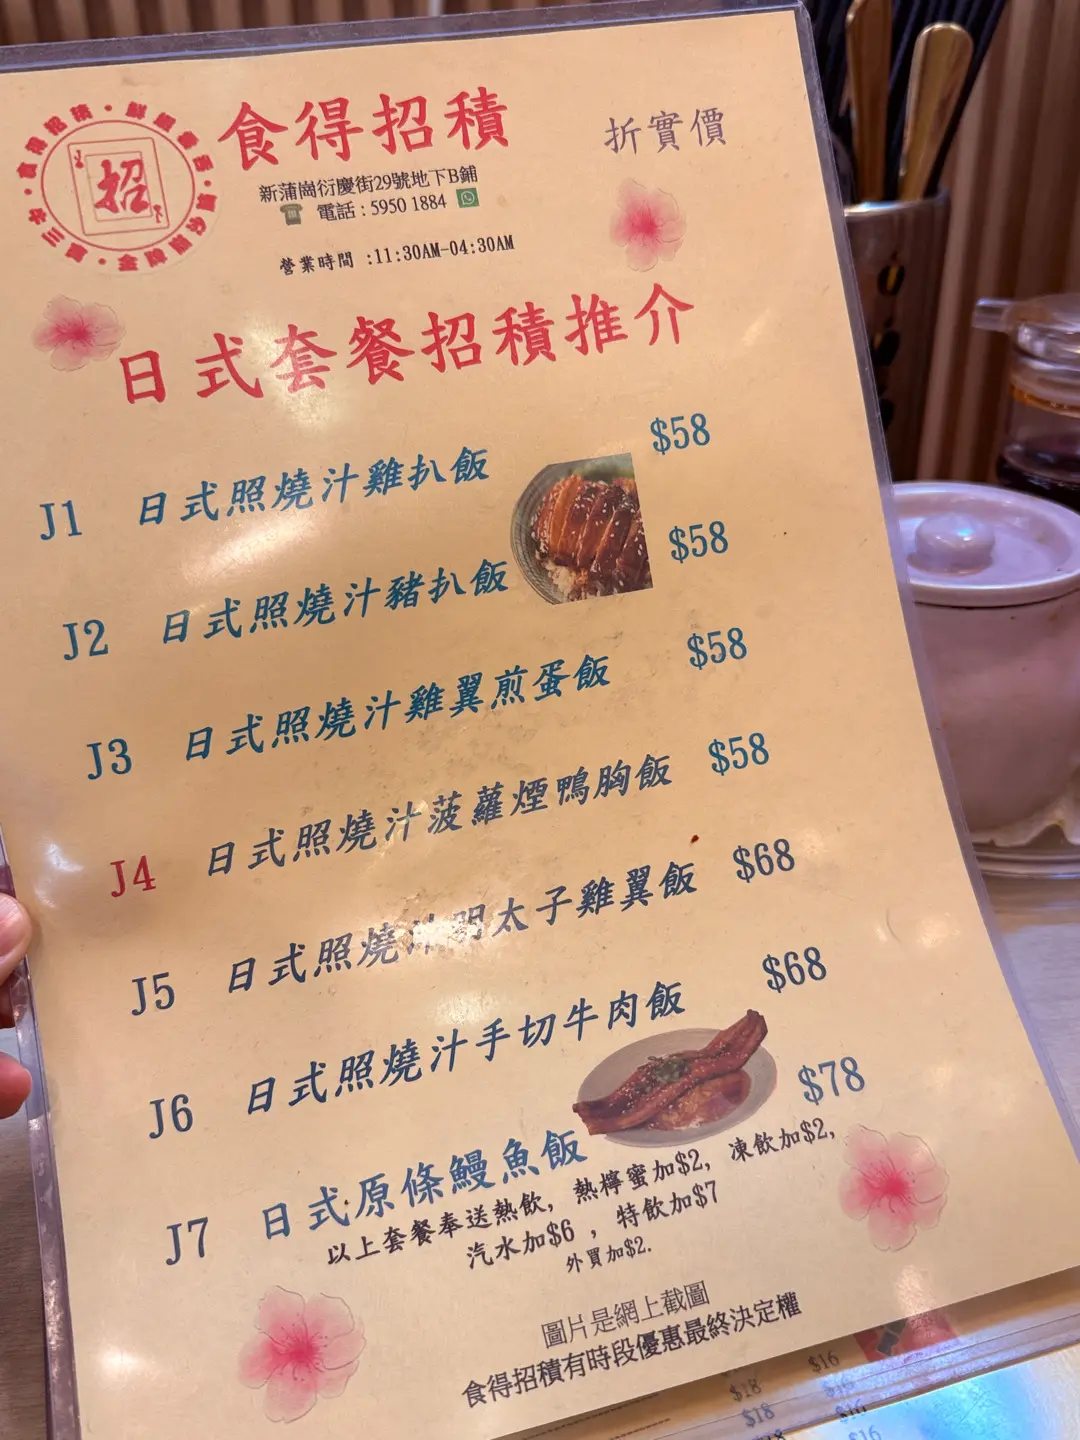 招
食得招積
折實價
新蒲崗衍慶街29號地下B鋪
電話 : 5950 1884
營業時間 :11:30AM-04:30AM
日式套餐招積推介
J1 日式照燒汁雞扒飯 $58
J2 日式照燒汁豬扒飯 $58
J3 日式照燒汁雞翼煎蛋飯 $58
J4 日式照燒汁菠蘿煙鴨胸飯 $58
J5 日式照燒汁明太子雞翼飯 $68
J6 日式照燒汁手切牛肉飯 $68
J7 日式原條鰻魚飯 $78
以上套餐奉送熱飲, 熱檸蜜加$2, 凍飲加$2,
汽水加$6 , 特飲加$7
外買加$2.
圖片是網上截圖
食得招積有時段優惠最終決定權
$18 $16
$18 $16
$16